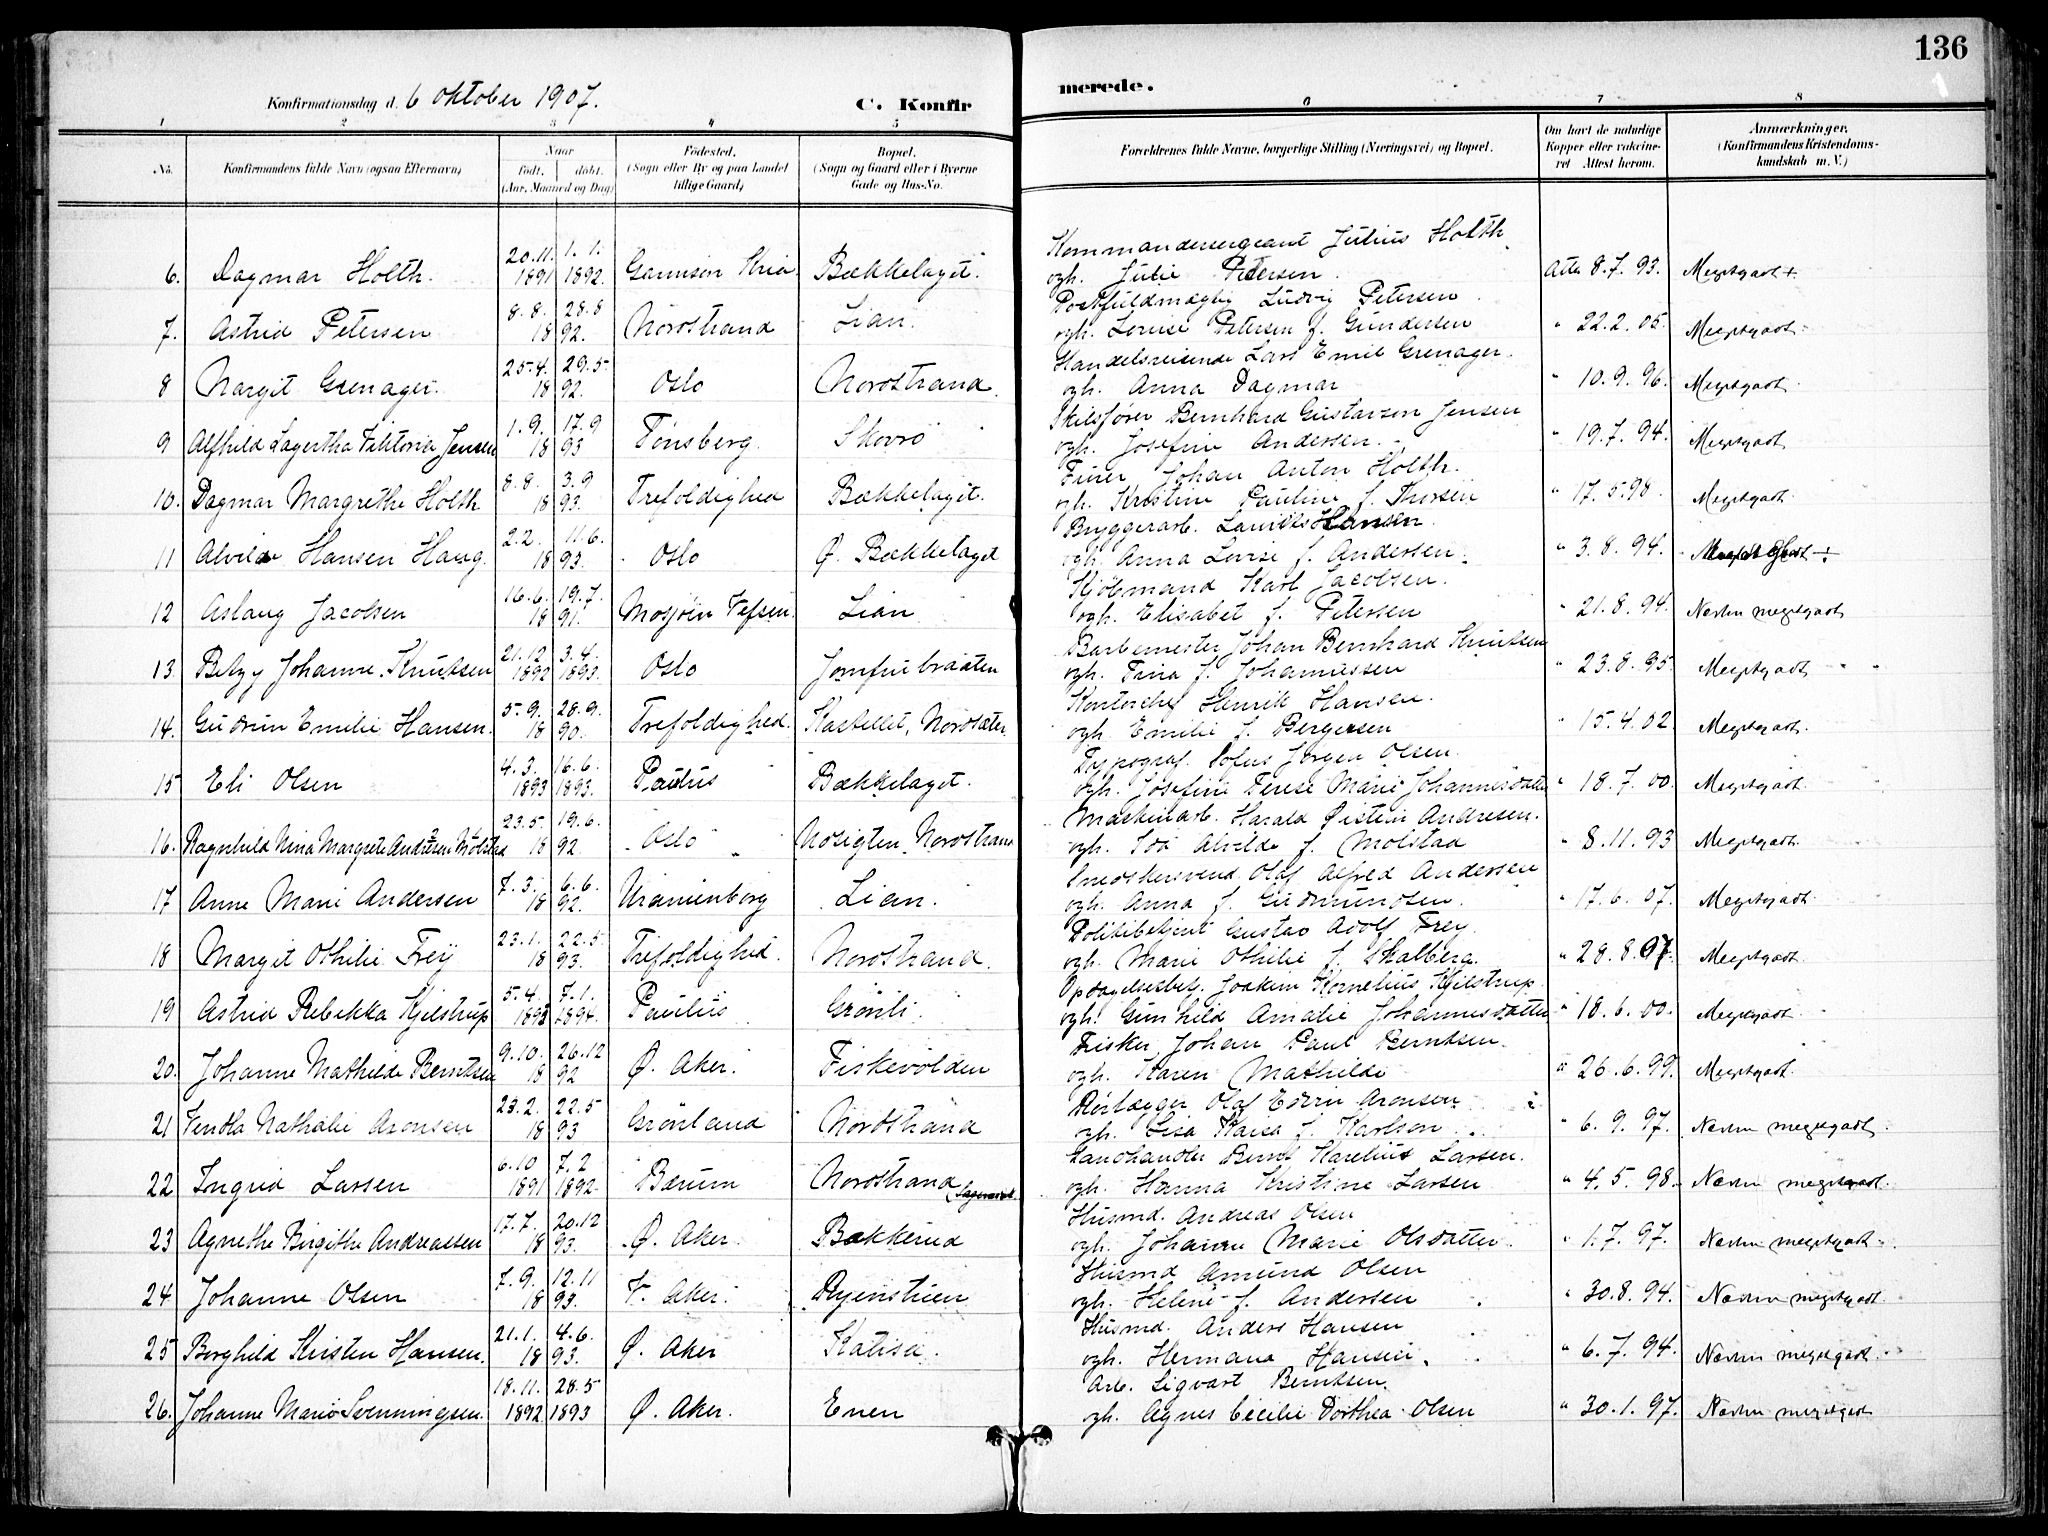 136
Konfirmationsdag d. 6 oktober 1907.
C. Konfirmerede.
1 2 3 4 5 6 7 8
No. Konfirmandens fulde Navn (ogsaa Efternavn) Naar født. døbt. (Aar, Maaned og Dag) Fødested. (Sogn eller By og paa Landet tillige Gaard) Bopæl. (Sogn og Gaard eller i Byerne Gade og Hus-No. Forældrenes fulde Navne, borgerlige Stilling (Næringsvei) og Bopæl. Om havt de naturlige Kopper eller vaccineret Attest herom. Anmærkninger. (Konfirmandens Kristendomskundskab m. V.)
Kommandersergeant Julius Holth
6. Dagmar Holth. 20.11. 1891 1.1. 1892. Garnison Kria. Bækkelaget. ogh. Julie Petersen. Atte 8.7.93. Megetgodt +
Postfuldmægtig Ludvig Petersen
7. Astrid Petersen 8.8. 28.8 1892. Nordstrand Lian. ogh. Louise Petersen f. Gundersen " 22.2.05. Megetgodt
Handelsreisende Lars Emil Grenager.
8 Margit Grenager. 25.4. 29.5 1892. Oslo Nordstrand. ogh. Anna Dagmar " 10.9.96. Megetgodt.
Skibsfører Bernhard Gustavson Jensen
9 Alfhild Lagertha Viktoria Jensen 1.9. 17.9 1893 Tønsberg. Skovro ogh. Josefine Andersen. " 19.7.94. Megetgodt
Furer Johan Anton Holth.
10. Dagmar Margrethe Holth 8.8. 3.9 1893. Trefoldighed Bækkelaget. ogh. Kristine Pauline f. Thorsen " 17.5.98. Megetgodt.
Bryggerarb. Laurits Hansen.
11 Alvilde Hansen Haug. 2.2. 11.6. 1893. Oslo Ø. Bækkelaget ogh. Anna Lovise f. Andersen. " 3.8.94.
Kjøbmand Karl Jacobsen.
12 Aslaug Jacobsen 16.6. 19.7. 1891. Mosjøen Vefsen. Lian ogh. Elisabet f. Petersen " 21.8.94. Næsten megetgodt
Barbermester Johan Bernhard Knutsen
13 Betzy Johanne Knutsen 21.12. 1892 3.4. 1893. Oslo Jomfrubraaten ogh. Tina f. Johannessen " 23.8.95. Megetgodt
Kontorchef Henrik Hansen.
14. Gudrun Emilie Hansen. 5.9. 28.9. 1890. Trefoldighed. Kastellet, Nordsæter ogh. Emilie f. Bergersen " 15.4.02 Megetgodt.
Typograf. Sofus Jørgen Olsen.
15 Eli Olsen 4.3. 1893 16.6. 1893. Paulus Bækkelaget. ogh. Josefine Terese Marie Johannesdatter " 18.7.00. Megetgodt.
Maskinarb. Harald Øistein Andresen.
16. Ragnhild Nina Margrete Andresen Molstad 23.5. 19.6. 1892. Oslo Udsigten, Nordstrand ogh. Ida Alvilde f. Molstad " 8.11.93 Megetgodt.
Smedsersvend Olaf Alfred Andersen
17 Anne Marie Andersen 7.3. 6.6. 1892. Uranienborg Lian. ogh. Anna f. Gudmundsen. " 17.6.07. Megetgodt.
Politibetjent Gustav Adolf Frey.
18 Margit Othilie Frey 23.1. 22.5. 1893. Trefoldighed. Nordstrand. ogh. Marie Othilie f. Skalberg. " 28.8.97. Megetgodt.
Opdagelsesbetj. Joakim Kornelius Kjelstrup.
19 Astrid Rebekka Kjelstrup 5.4. 1893 7.1. 1894. Paulus Grønli. ogh. Gunhild Amalie Johannesdatter " 18.6.00. Megetgodt.
Fisker Johan Paul Berntsen.
20. Johanne Mathilde Berntsen 9.10. 26.12 1892 Ø. Aker. Fiskevolden ogh. Karen Mathilde " 26.6.99. Megetgodt.
Rørlægger Olaf Edvin Aronsen
21 Vendla Nathalie Aronsen 23.2. 22.5 1893 Grønland Nordstrand ogh. Lisa Kaisa f. Karlson " 6.9.97. Næsten megetgodt.
Landhandler Bernt Karelius Larsen.
22 Ingrid Larsen 6.10 1891 7.2 1892. Bærum Nordstrand ogh. Hanna Kristine Larsen " 4.5.98. Næsten megetgodt.
Husmd. Andreas Olsen
23 Agnethe Birgithe Andreassen 17.7. 20.12 1893. Ø. Aker. Bakkerud ogh. Johanne Marie Olsdatter. " 1.7.97. Næsten megetgodt.
Husmd Amund Olsen
24 Johanne Olsen 7.9. 12.11 1893. V. Aker. Ryenstuen ogh. Helene f. Andersen " 30.8.94. Næsten megetgodt.
Husmd. Anders Hansen
25 Borghild Kirsten Hansen. 21.1. 4.6. 1893. Ø. Aker Katisa. ogh. Hermana Hansen. " 6.7.94. Næsten megetgodt.
Arb. Sigvart Berntsen.
26. Johanne Marie Svenningsen. 18.11. 1892 28.5 1893 Ø. Aker. Enen ogh. Agnes Cecilie Dorthea Olsen " 30.1.97. Næsten megetgodt